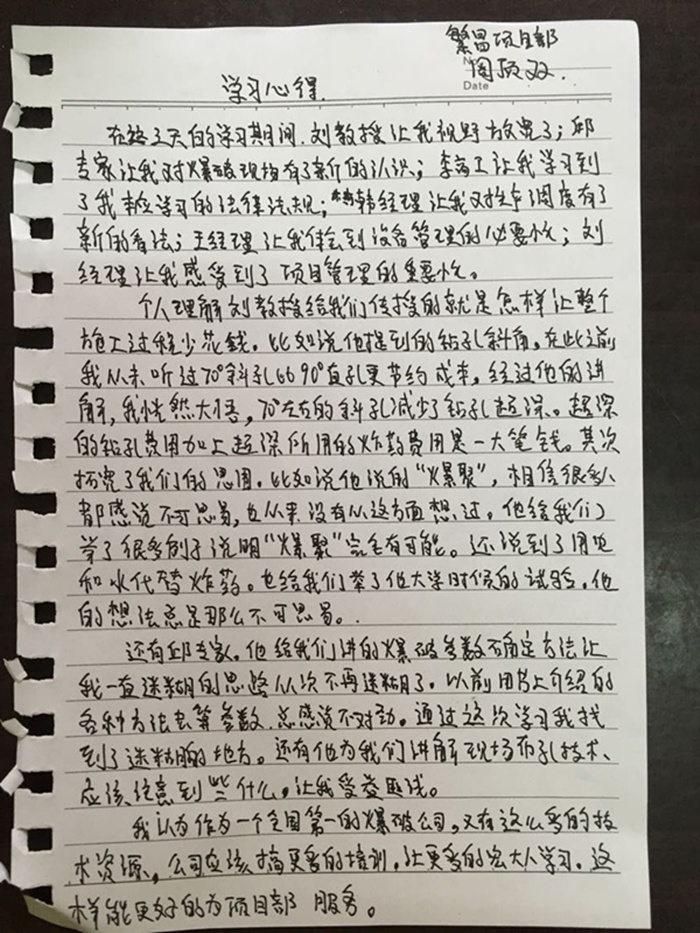 繁昌项目部
周顶双.
Date
学习心得.
在这3天的学习期间.刘教授让我视野放宽了；邱
专家让我对爆破现场有了新的认识；李高工让我学习到
了我本应学习的法律法规；韩经理让我对生产调度有了
新的看法；王经理让我体会到设备管理的必要性；刘
经理让我感受到了项目管理的重要性。
个人理解刘教授给我们传授的就是怎样让整个
施工过程少花钱.比如说他提到的钻孔斜角,在此之前
我从未听过70°斜孔比90°直孔更节约成本,经过他的讲
解,我恍然大悟,70°左右的斜孔减少了钻孔超深。超深
的钻孔费用加上超深所用的炸药费用是一大笔钱。其次
拓宽了我们的思围.比如说他说的“爆聚”,相信很多人
都感觉不可思易,也从来没有从这方面想过.他给我们
举了很多例子说明“爆聚”完全有可能。还说到了用电
和水代替炸药。也给我们举了他大学时候的试验.他
的想法总是那么不可思易。
还有邱专家.他给我们讲的爆破参数确定方法让
我一直迷糊的思路从次不再迷糊了.以前用书上介绍的
各种方法去算参数.总感觉不对劲。通过这次学习我找
到了迷糊的地方。还有他为我们讲解现场布孔技术、
应该注意到些什么,让我受益匪浅。
我认为作为一个全国第一的爆破公司,又有这么多的技
术资源,公司应该搞更多的培训,让更多的人学习.这
样能更好的为项目部服务。